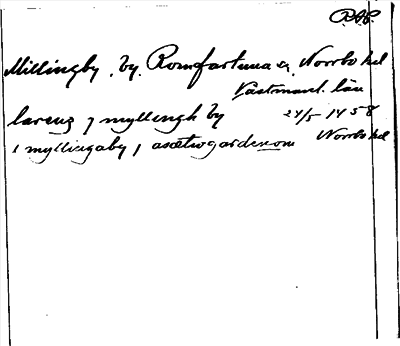 R.A.P.
Millingby, by, Romfartuna sn, Norrbo hd
Västmanl. län
larens j myllingh by 24/5 1458
i myllingaby, j asætrogardenom Norrbo hd